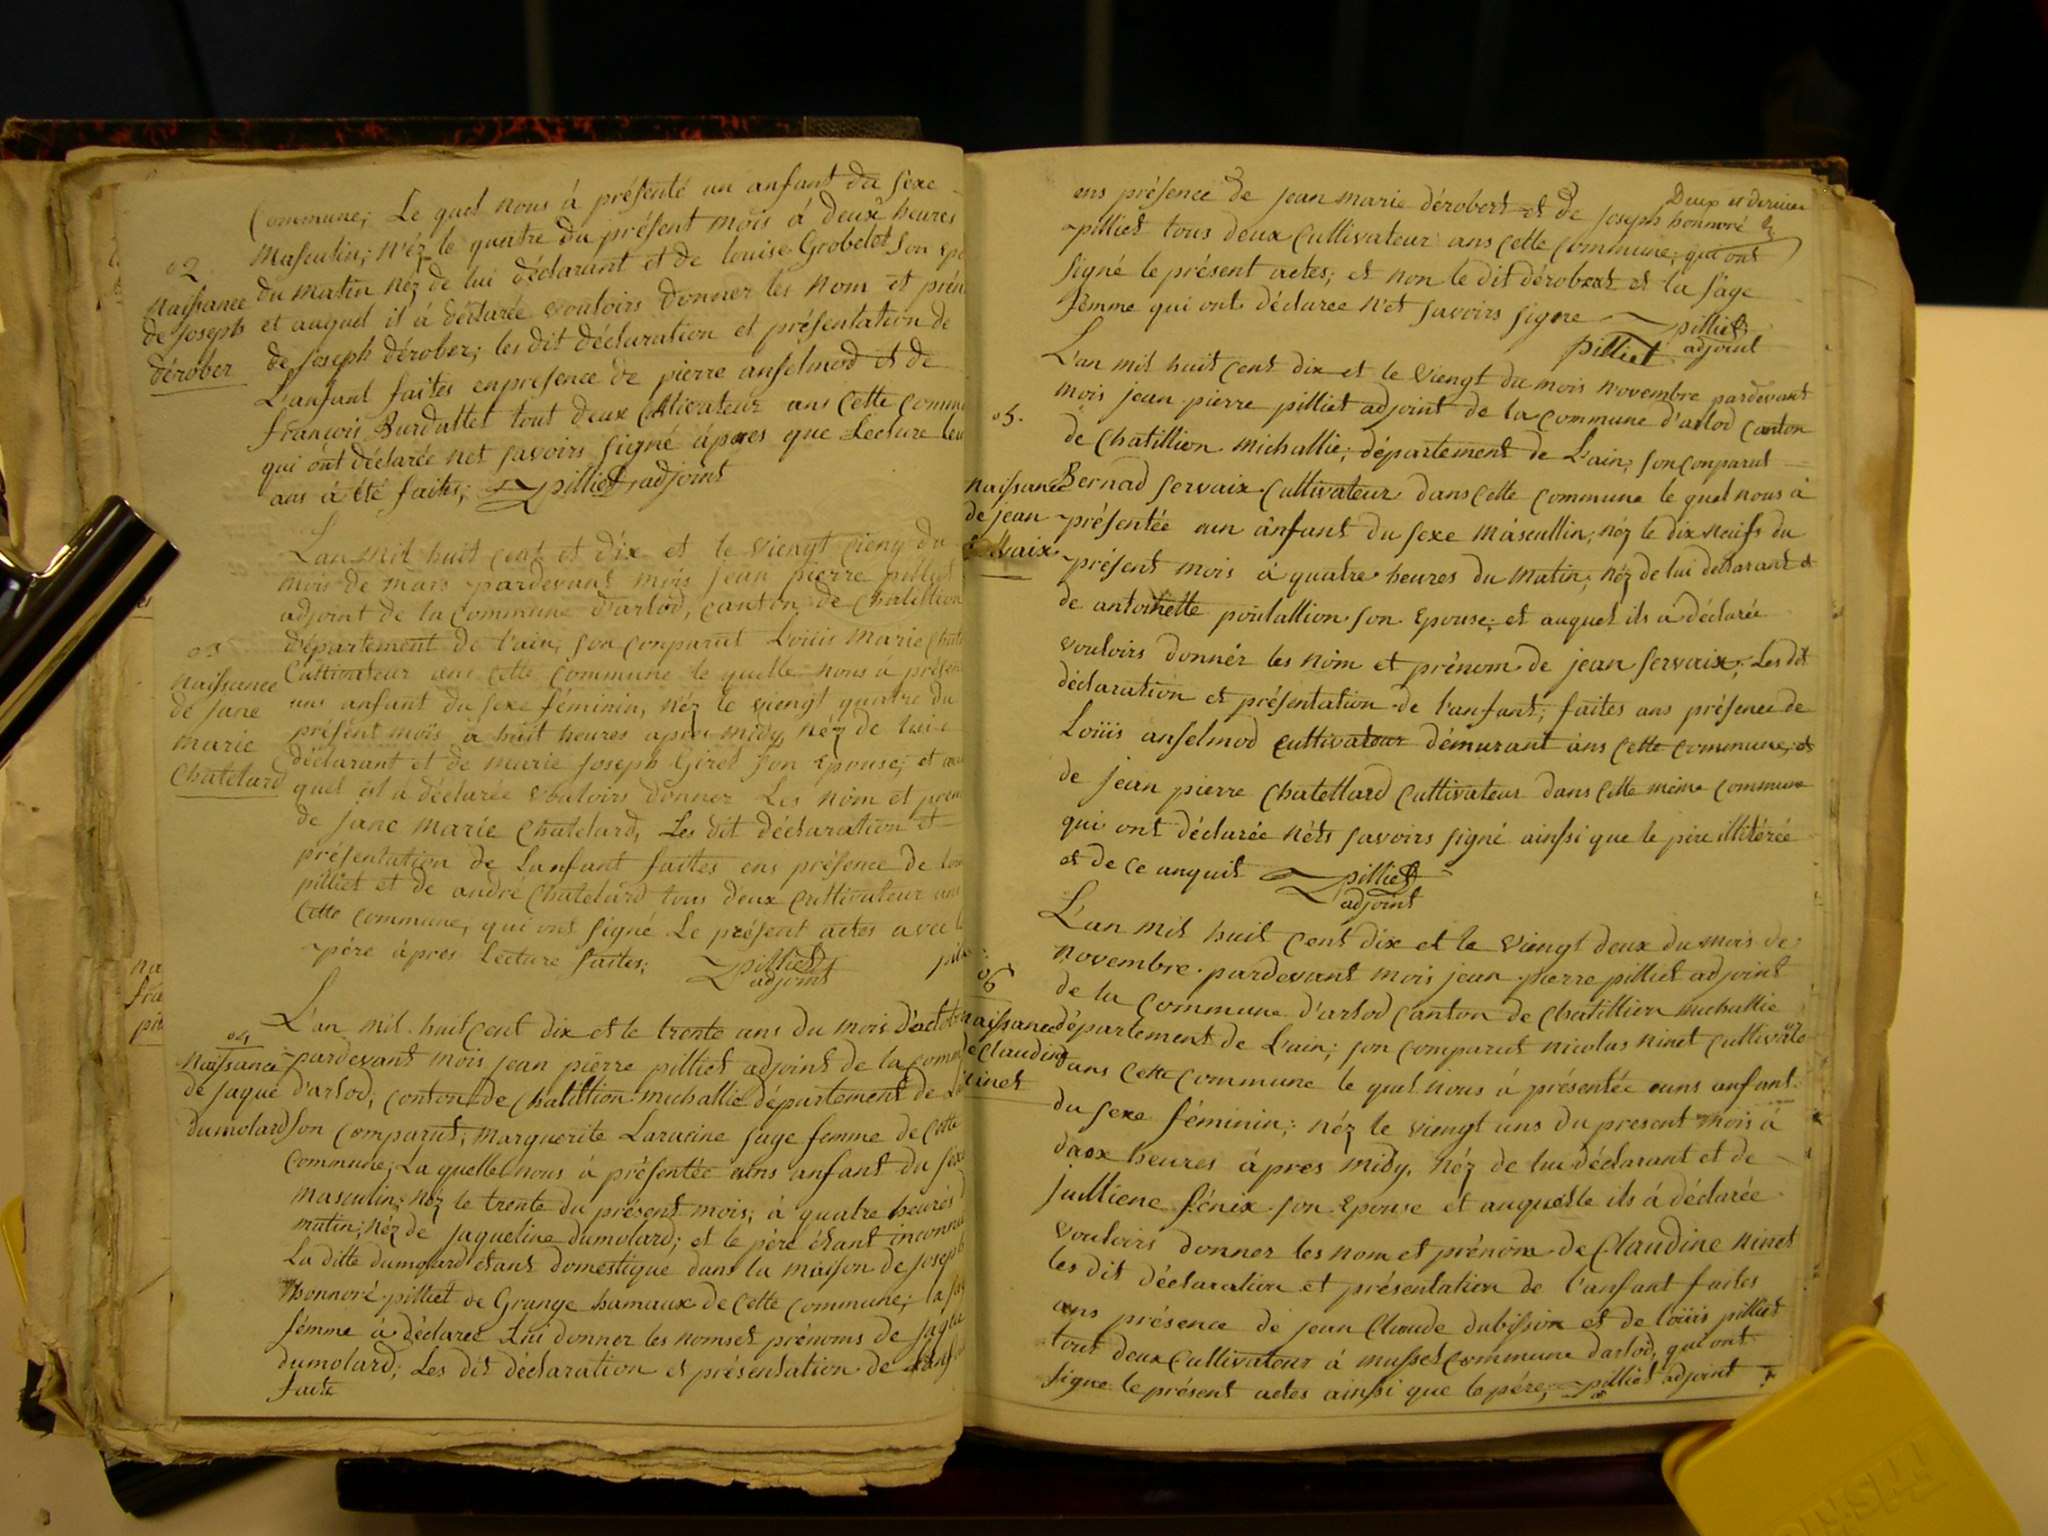 Commune; Le quel nous à présenté un anfant du sexe
Masculin; néz le quatre du présent mois à deux heures
du matin néz de lui déclarant et de louise Grobelet son epo
et auquel il à déclarée vouloirs donner les nom et prén
de joseph dérober; les dit déclaration et présentation de
L'anfant faites enpresence de pierre anselmod et de
françois Burdattet tout deux Cultivateur ans cette comm
qui ont déclarée net savoirs signé àpres que Lecture leu
ans à été faites; pilliet adjoint
02
Naissance
de joseph
dérober
L'an mil huit cent et dix et le viengt cienq du
mois de mars pardevant mois jean pierre pilliet
adjoint de la commune d'arlod, canton de Chatillion
département de l'ain, son conparut Louis Marie Chate
Cultivateur ans cette commune le quelle nous à présen
uns anfant du sexe féminin, néz le viengt quatre du
présent mois à huit heures apres midy, néz de lui
déclarant et de marie joseph Giret son Epouse; et au
quel il à déclarée vouloirs donner Les nom et pren
de jane marie Chatelard, Les dit déclaration et
présentation de Lanfant faittes ens présence de lou
pilliet et de andré Chatelard tous deux Cultivateur ans
Cette commune, qui ont signé Le présent actes avec l
père àpres Lecture faites; pilliet
adjoint
03
Naissance
de jane
marie
Chatelard
L'an mil huit Cent dix et le trente uns du mois d'octob
pardevant mois jean pierre pilliet adjoint de la comm
d'arlod; conton de Chatillion michallie département de L'a
son comparut; marguerite Laracine sage femme de Cette
commune; La quelle nous à présentée uns anfant du sexe
masculin; néz le trente du présent mois; à quatre heures
matin; néz de jaqueline dumolard; et le père étant inconnu
La ditte dumolard étant domestique dans la maison de joseph
honnoré pilliet de Grange hamaux de Cette commune; la sa
fémme à déclaree Lui donner les noms et prénoms de jaque
dumolard; Les dit déclaration et présentation de Lanf
faite
04
Naissance
de jaque
dumolard
Deux et dernier
ens présence de jean marie dérobert et de joseph honnoré
pilliet tous deux Cultivateur ans cette commune; qui ont
signé le présent actes; et non le dit dérobert et la sage
femme qui ont déclaree n'et savoirs signe pilliet
pilliet adjoint
L'an mil huit cent dix et le viengt du mois novembre pardevant
mois jean pierre pilliet adjoint de la commune d'arlod canton
de Chatillion michallie; département de L'ain; son conparut
Bernad servaix Cultivateur dans cette commune le quel nous à
présentée un anfant du sexe masculin; néz le dix neufs du
présent mois à quatre heures du matin; néz de lui declarant et
de antoinette poulallion son Epouse; et auquel ils à déclarée
vouloirs donnér les nom et prénom de jean servaix; Les dit
déclaration et présentation de l'anfant; faites ans présence de
Loüis anselmod cultivateur démurant ans cette commune; et
de jean pierre Chatellard Cultivateur dans cette même commune
qui ont déclarée nets savoirs signé ainssi que le père illitérée
et de ce anquit pilliet
adjoint
05.
Naissance
de jean
servaix
L'an mil huit cent dix et le viengt deux du mois de
novembre pardevant mois jean pierre pilliet adjoint
de la commune d'arlod Canton de Chatillion michallie
département de L'ain; son comparut nicolas ninet cultivateur
dans cette commune le quel nous à présentée uns anfant
du sexe féminin; néz le viengt uns du present mois à
daox heures àpres midy, néz de lui déclarant et de
julliene fénix son Epouse et auquelle ils à déclarée
vouloirs donner les nom et prénom de Claudine ninet
les dit déclaration et présentation de l'anfant faites
ans présence de jean Claude dubisson et de loüis pilliet
tout deux Cultivateur à mussel commune darlod, qui ont
signe le présent actes ainssi que le pére; pilliet adjoint
06
naissance
de Claudine
ninet